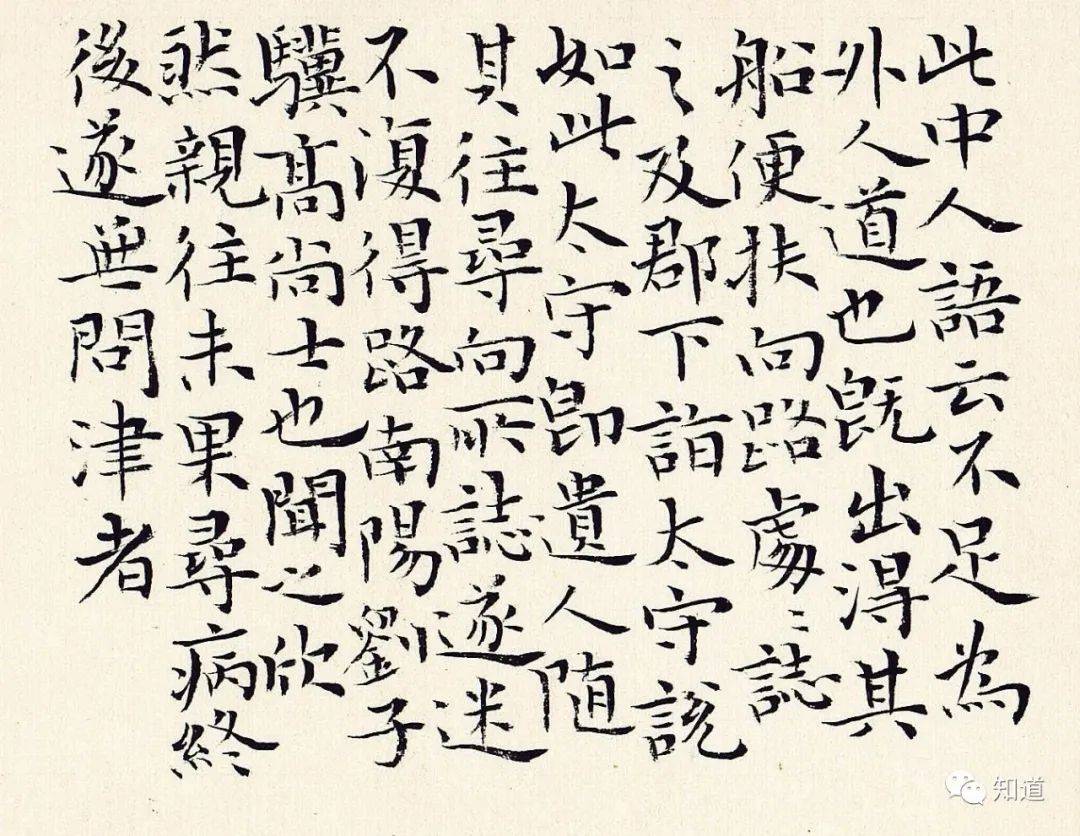 此中人語云不足為
外人道也既出得其
船便扶向路處〻誌
之及郡下詣太守說
如此太守即遣人随
其往尋向所誌遂迷
不復得路南陽劉子
驥高尚士也聞之欣
然親往未果尋病終
後遂無問津者
知道